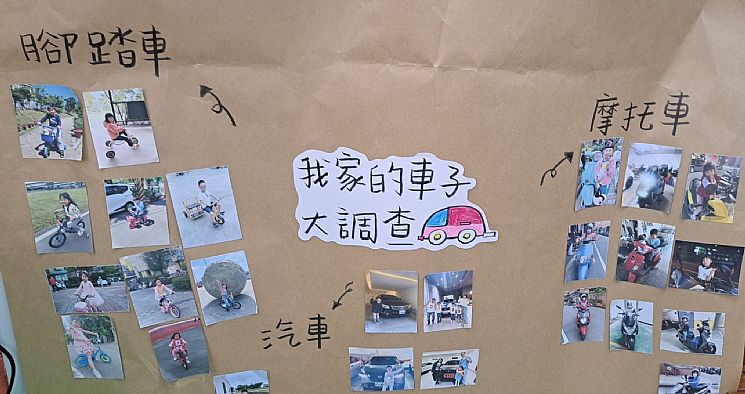 腳踏車
摩托車
我家的車子
大調查
汽車